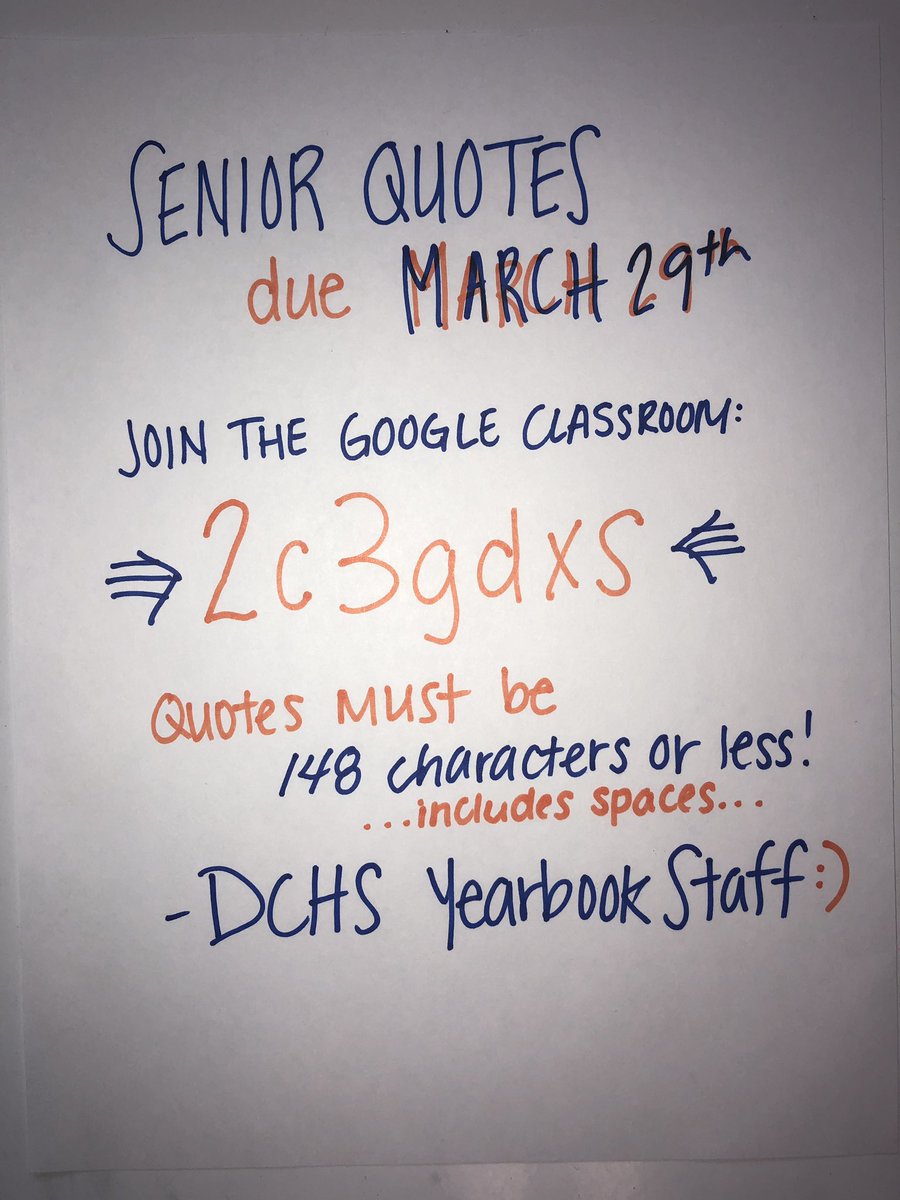 SENIOR QUOTES
due MARCH 29th
JOIN THE GOOGLE CLASSROOM:
2c3gdxs
Quotes MUST be
148 characters or less!
...includes spaces...
-DCHS Yearbook Staff:)